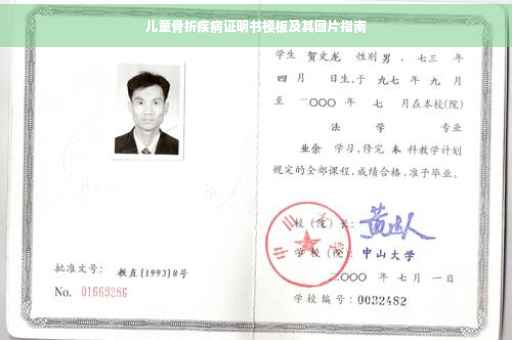 儿童骨折疾病证明书模板及其图片指南
学生 贺文龙 性别 男 、七三 年
四 月 日生,于 九七 年 九 月
至 二〇〇〇 年 七 月在本校(院)
法 学 专业
业余 学习,修完 本 科教学计划
规定的全部课程,成绩合格,准予毕业。
校(院)长:
学校(院): 中山大学
二〇〇〇 年 七 月 一 日
学校编号: 0032482
批准文号: 教直[1993]8号
No. 01669286